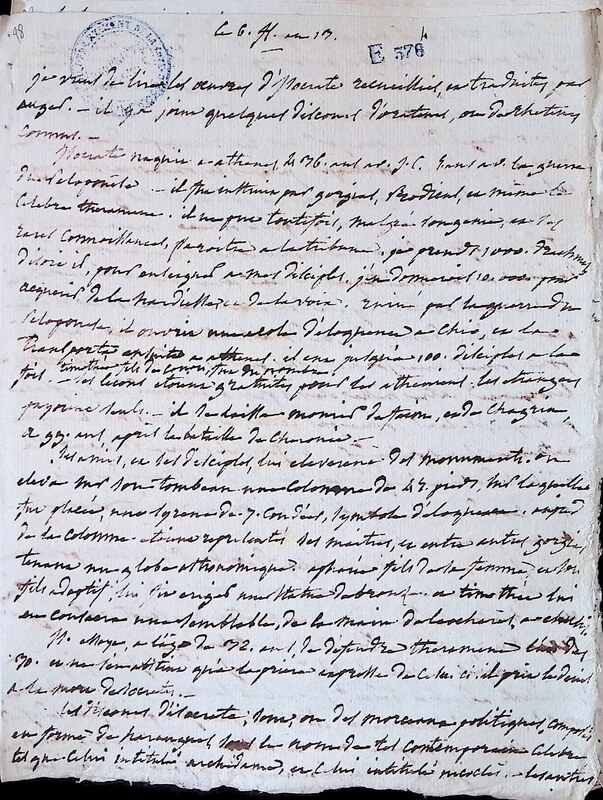 98
le 6. fl. an 13.
E 376
je viens de lire les œuvres d'isocrate recueillies, et traduites par
auger. — il y a joint quelques discours d'orateurs, ou de rhéteurs
connus. —
Isocrate naquit a athenes 436. ans av. J. C. 5 ans av. la guerre
du Peloponese. — il fut instruit par gorgias, Prodicus, et même le
celebre theramene. il ne put toutefois, malgré son genie, et ses
rares connoissances, paroitre a la tribune. je prends 1000. drachmes
disoit il, pour enseigner a mes disciples. j'en donnerois 10.000 pour
acquerir de la hardiesse et de la voix. Ruiné par la guerre du
Peloponese, il ouvrit une ecole d'éloquence a Chio, et la
transporta ensuite a athenes. il eut jusqu'à 100. disciples a la
fois. timothée fils de conon, fut du nombre.
— ses leçons etoient gratuites pour les atheniens. les etrangers
payoient seuls. — il se laissa mourir de faim, et de chagrin
a 99. ans, après la bataille de Cheronée. —
Ses amis, et ses disciples, lui eleverent des monuments. on
eleva sur son tombeau une colonne de 45. pieds, sur laquelle
fut placée, une syrene de 7. coudées, symbole d'éloquence. auprès
de la colonne etoient representés ses maitres, et entre autres gorgias
tenant un globe astronomique. apharée fils de sa femme, et son
fils adoptif lui fit eriger une statue de bronze. et timothée lui
en consacra une semblable, de la main de leocharès, a eleusis.
Is. essaya, a l'age de 32. ans, de defendre theramene l'un des
30. et ne se retira qu'a la priere expresse de celui ci. il prit le deuil
a la mort de socrate. —
Les discours d'isocrate, sont, ou des morceaux politiques, composés
en forme de harangues, sous le nom de tel contemporain celebre
tel que celui intitulé archidame, et celui intitulé nicoclès. — les autres